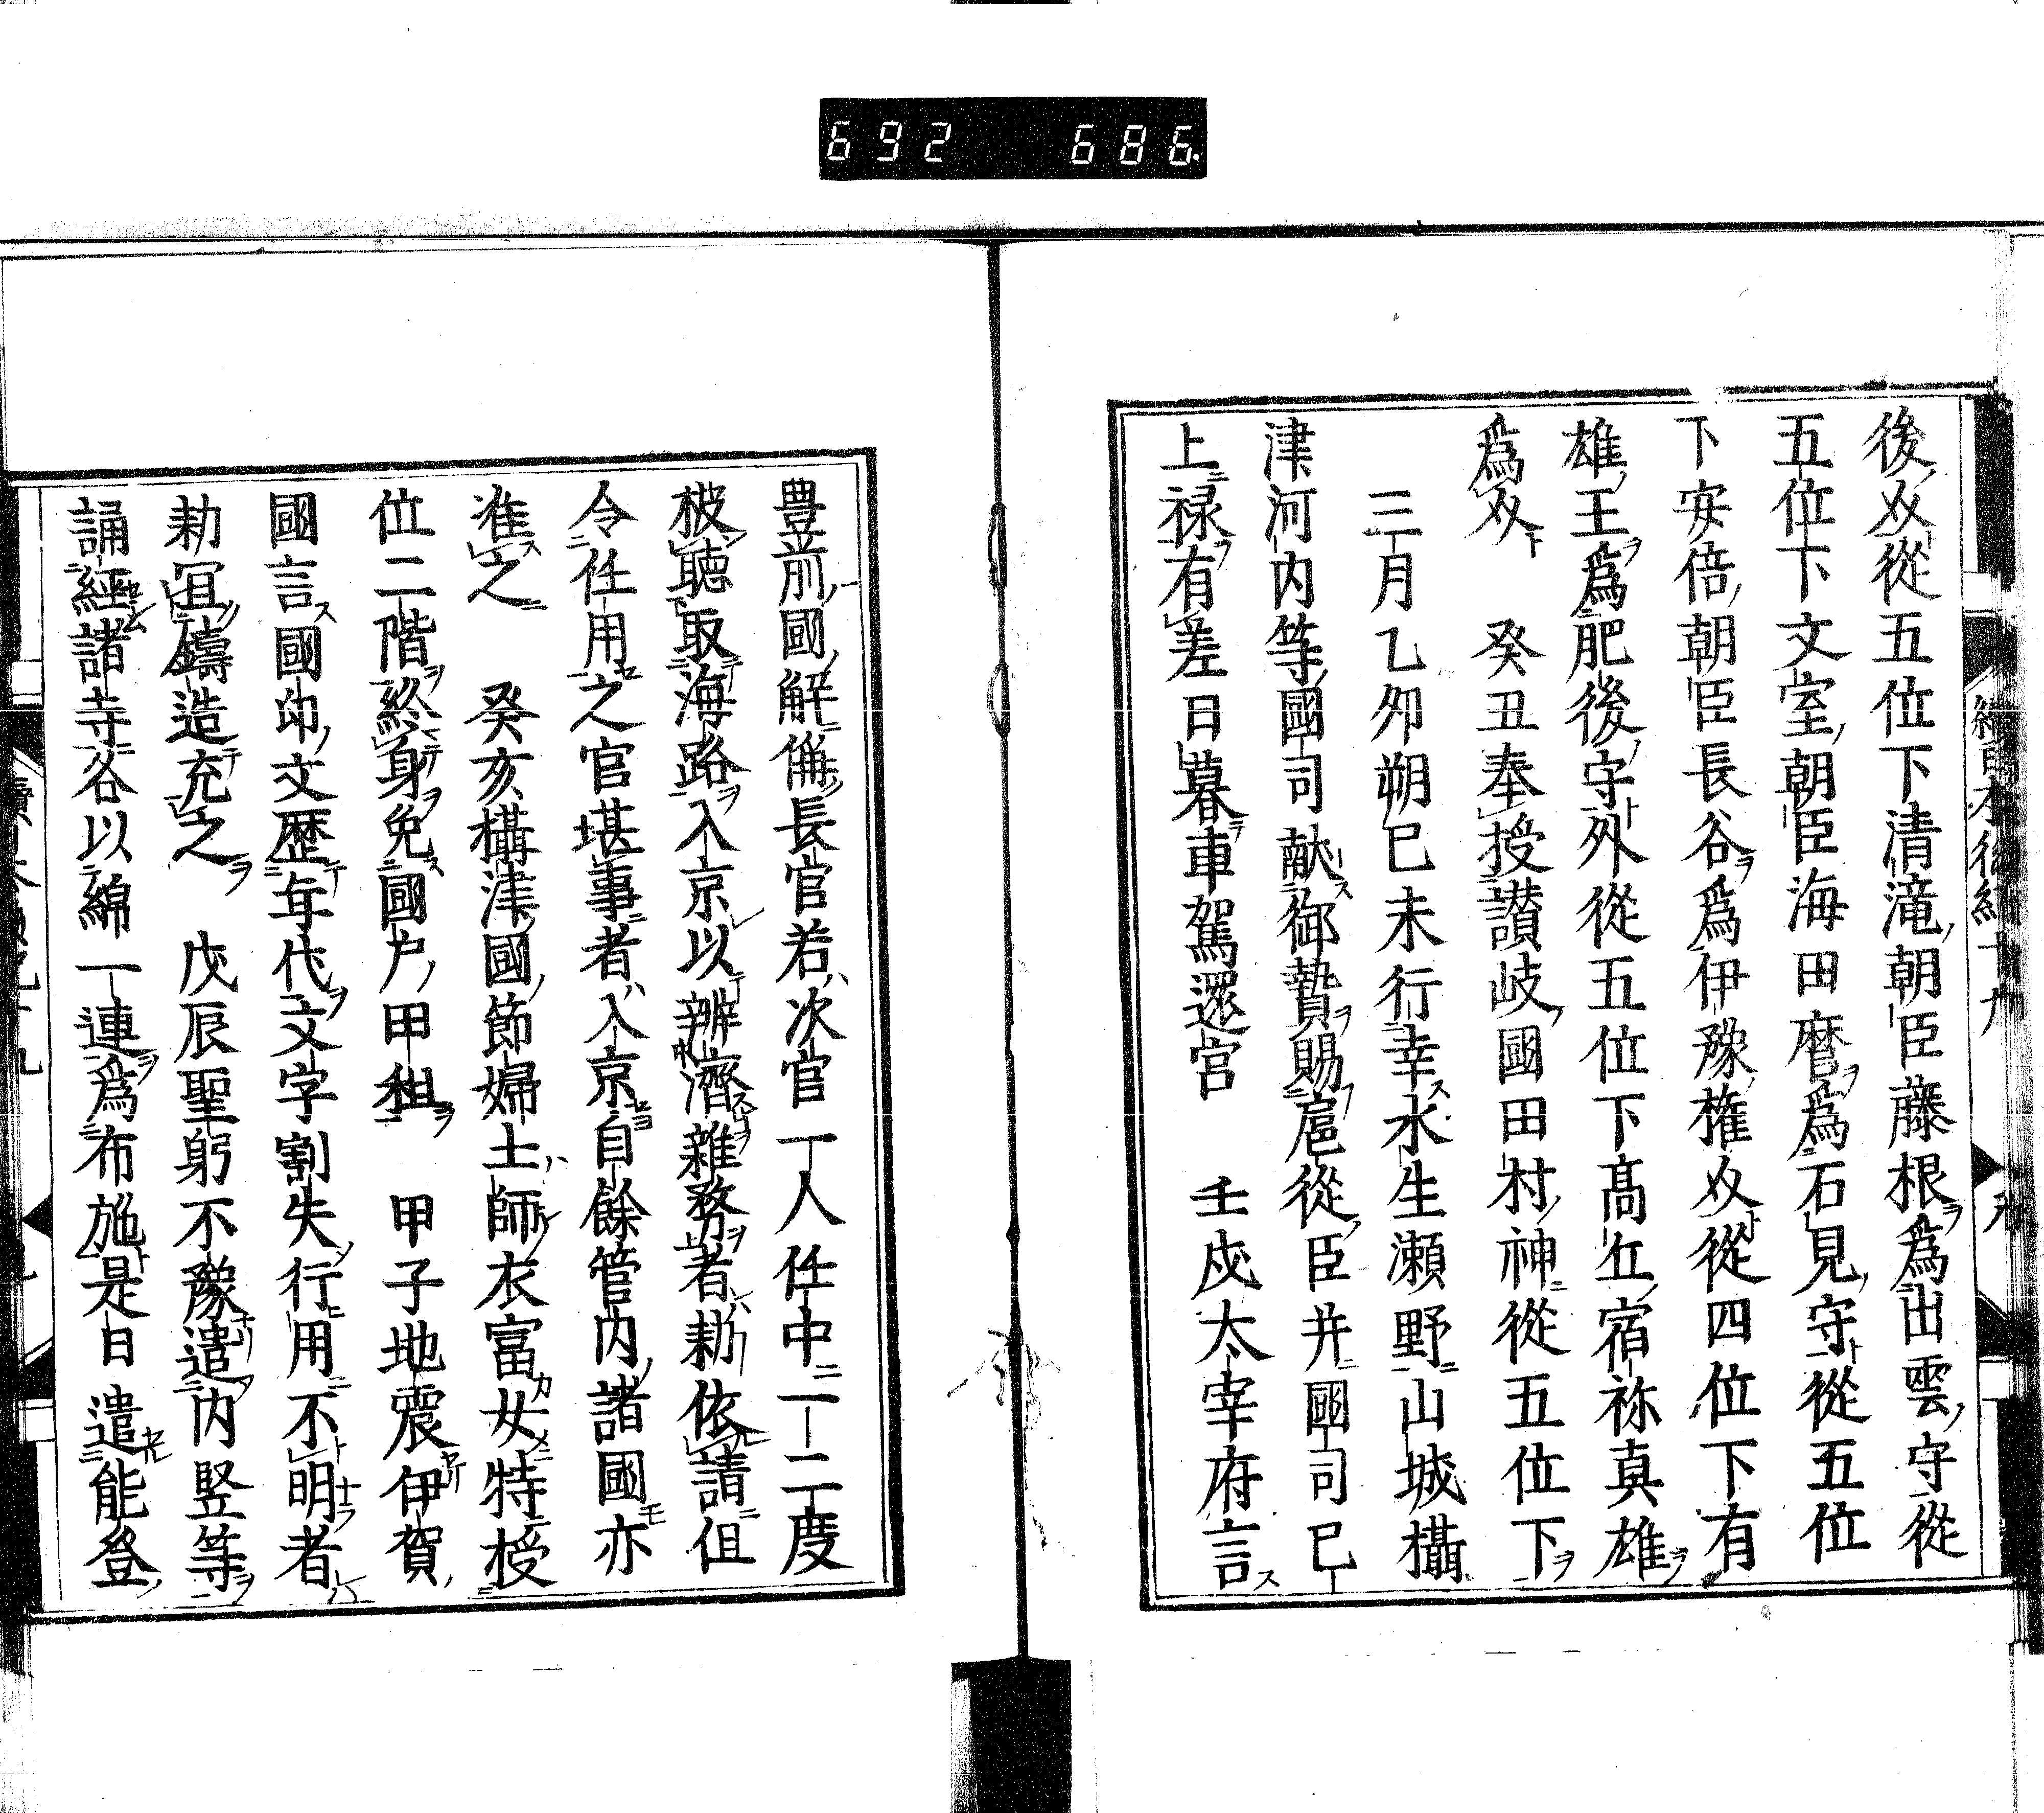 692 686
後𠬧從五位下清滝朝臣藤根爲出雲守從
五位下文室朝臣海田麿爲石見守從五位
下安倍朝臣長谷爲伊豫權𠬧從四位下有
雄王爲肥後守外從五位下髙丘宿祢真雄
爲𠬧　癸丑奉授讃岐國田村神從五位下
三月乙夘朔已未行幸水生瀬野山城攝
津河内等國司献御贄賜扈從臣并國司已
上禄有差日暮車駕還宮　壬戌太宰府言
豊前國解偁長官若次官一人任中一二度
被聴取海路入京以辨濟雑務者勅依請但
令任用之官堪事者入京自餘管内諸國亦
准之　癸亥攝津國節婦土師衣富女特授
位二階終身免國戸田租　甲子地震伊賀
國言國印文歴年代文字割失行用不明者
勅冝鑄造充之　戊辰聖躬不豫遣内竪等
誦經諸寺各以綿一連爲布施是日遣能登